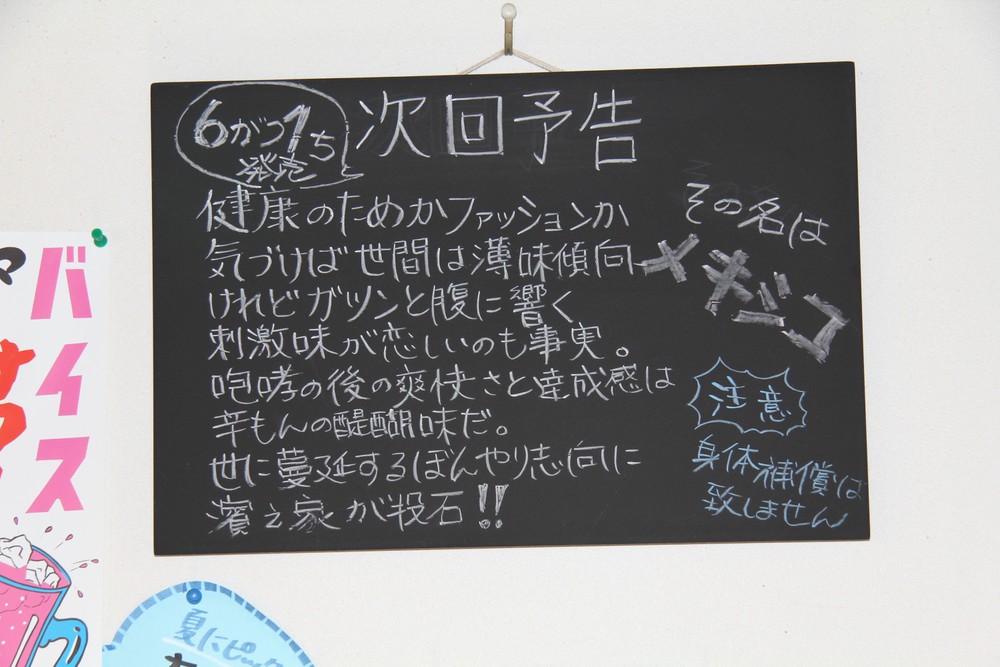 6がつ1ち
発売
次回予告
健康のためかファッションか
気づけば世間は薄味傾向
けれどガツンと腹に響く
刺激味が恋しいのも事実。
咆哮の後の爽快さと達成感は
辛もんの醍醐味だ。
世に蔓延するぼんやり志向に
濱之家が投石!!
その名は
メキシコ
注意
身体補償は
致しません
バイス
夏にピッ